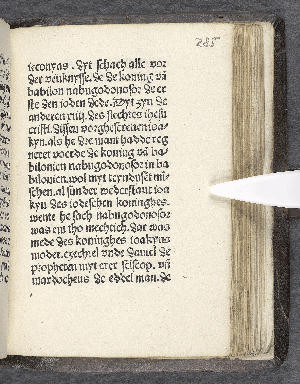 285
ieconyas. Dyt schach alle vor
der venknysse. de de koning vā
babilon nabugodonosor de er
ste den ioden dede. Wyt zyn de
anderen
cristi. dissen vorghescreuen ioa
kyn. als he dre iaar hadde reg
neret voerde de koning vā ba
bilonien nabugodonosor in ba
bilonien. wol myt teyndusēt mī
schen. al sunder wederstant ioa
kyn des iodeschen koninghes.
wente he sach nabugodonosor
was em tho mechtich. dar was
mede des koninghes ioakyns
moder. ezechiel vnde daniel de
propheten myt erer selscop. vñ
mardocheus de eddel man. de